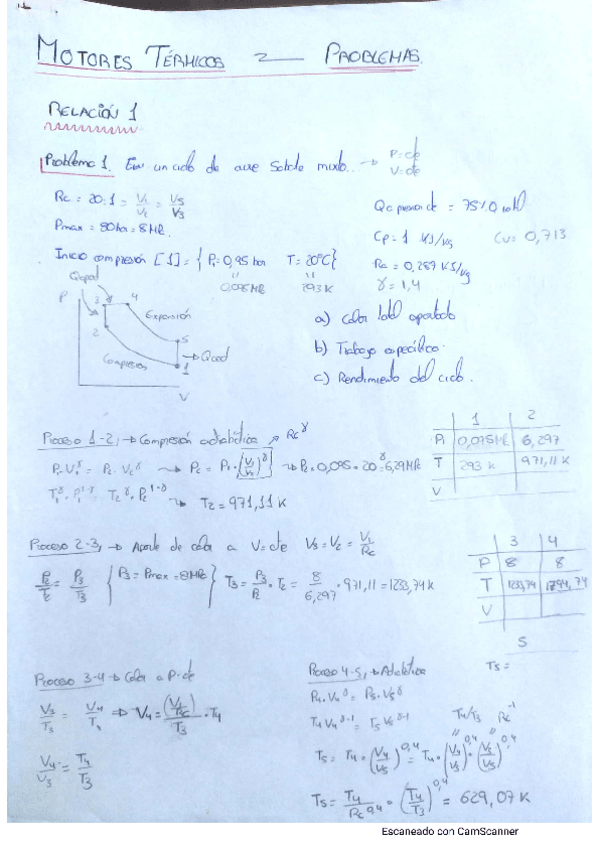 MOTORES TÉRMICOS 2 — PROBLEMAS.
RELACIÓN 1
Problema 1. En un ciclo de aire Sabate mixto. → P=cte
V=cte
Rc = 20:1 = V1/V2 = V5/V3
Pmax = 80 bar = 8 MPa.
Inicio compresión [1] = { P1=0,95 bar T=20ºC }
0,095 MPa 293 K
Qc presión cte = 75% Q total
Cp = 1 KJ/kg Cv = 0,713
Ra = 0,287 KJ/kg
γ = 1,4
a) Calor total aportado
b) Trabajo específico.
c) Rendimiento del ciclo.
Qapor
P 3 4
Expansión
2 5
→ Qced
Compresión 1
V
Proceso 1-2, → Compresión adiabática → Rc^γ
P1·V1^γ = P2·V2^γ → P2 = P1·(V1/V2)^γ → P2 = 0,095·20^γ = 6,29 MPa
T1^γ·P1^1-γ = T2^γ·P2^1-γ → T2 = 971,11 K
1 2
P 0,095 MPa 6,297
T 293 K 971,11 K
V
Proceso 2-3, → Aporte de calor a V=cte V3 = V2 = V1/Rc
P2/T2 = P3/T3 { P3 = Pmax = 8 MPa } T3 = P3/P2 · T2 = 8/6,297 · 971,11 = 1233,74 K
3 4
P 8 8
T 1233,74 1794,74
V
5
T5 =
Proceso 3-4 → Calor a P=cte
V3/T3 = V4/T4 ⇒ V4 = (V1/Rc)/T3 · T4
V4/V3 = T4/T3
Proceso 4-5, → Adiabática
P4·V4^γ = P5·V5^γ
T4 V4^γ-1 = T5 V5^γ-1 T4/T3 Rc^-1
T5 = T4·(V4/V5)^0,4 = T4·(V4/V3)^0,4·(V3/V5)^0,4
T5 = T4/Rc^0,4 · (T4/T3)^0,4 = 629,07 K
Escaneado con CamScanner